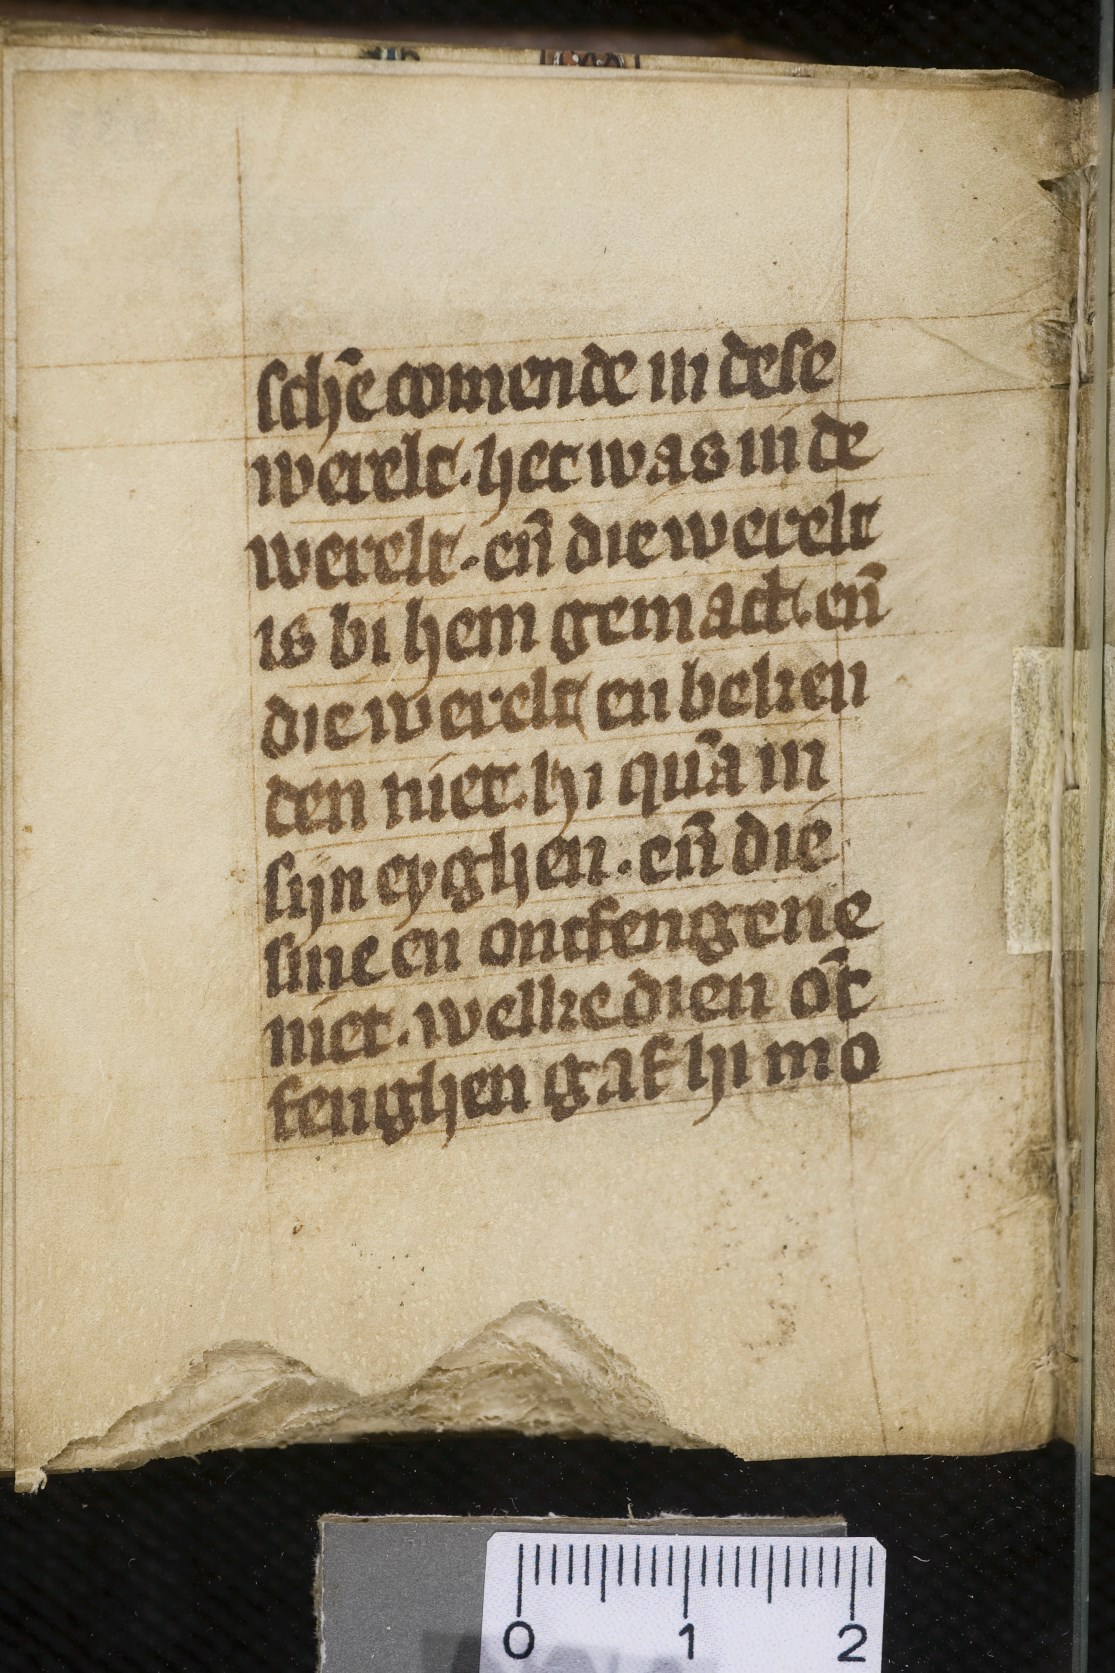 schē comende in dese
werelt. het was in de
werelt. en̄ die werelt
is bi hem gemact. en̄
die werelt en beken
den niet. hi quā in
sijn eyghen. en̄ die
sine en ontfengene
niet. welke dien ōt
fenghen gaf hi mo
0 1 2